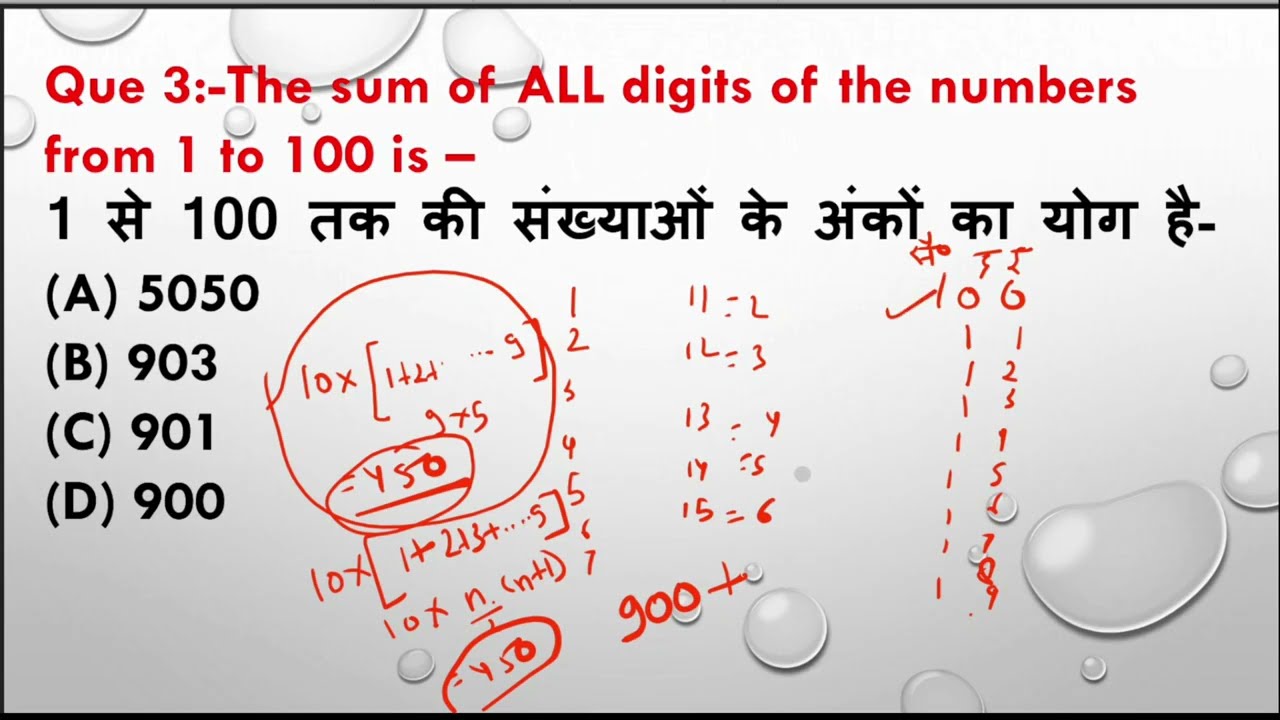 Que 3:-The sum of ALL digits of the numbers
from 1 to 100 is –
1 से 100 तक की संख्याओं के अंकों का योग है-
(A) 5050
(B) 903
(C) 901
(D) 900
10x[1+2+ ... 9]
9x5
=450
10x[1+2+3+....9]
10x n/2 (n+1)
=450
1
2
3
4
5
6
7
11=2
12=3
13=4
14=5
15=6
900+
100
1 1
1 2
1 3
1 4
1 5
1 6
1 7
1 8
1 9